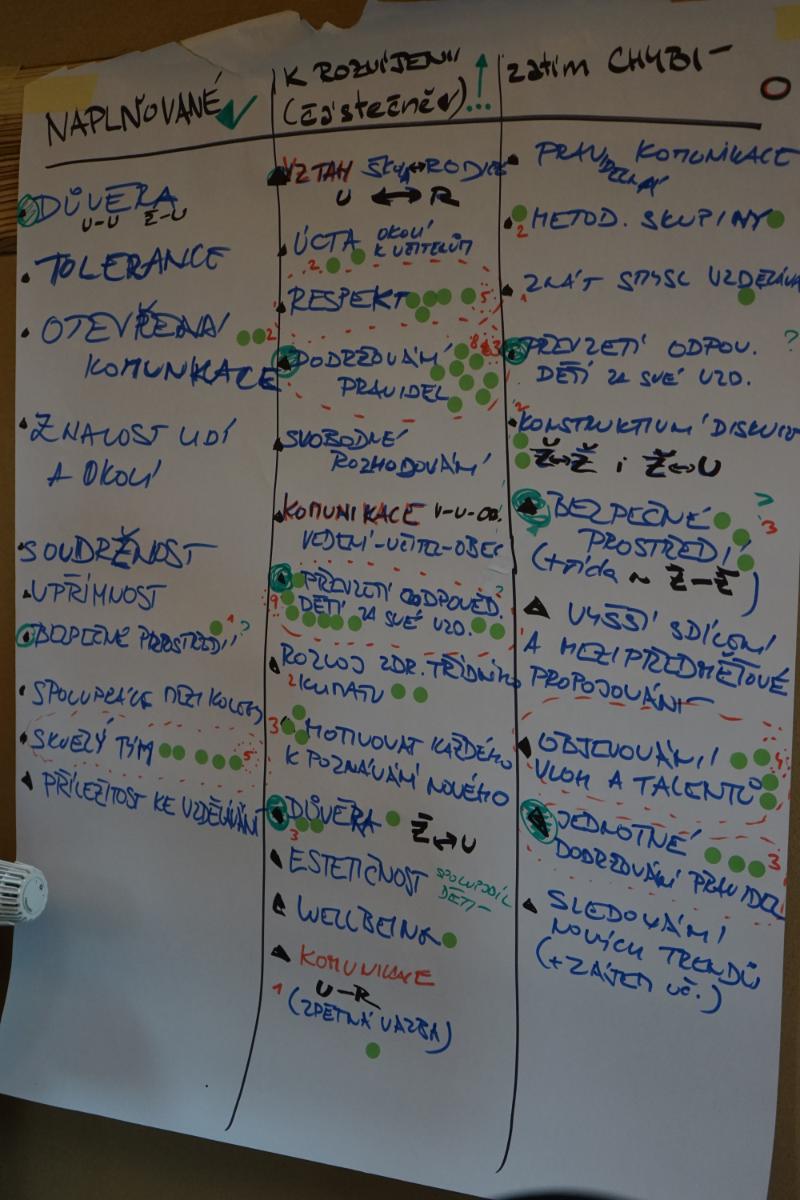 NAPLŇOVANÉ
DŮVĚRA
U-U Ž-U
TOLERANCE
OTEVŘENÁ 2
KOMUNIKACE
ZNALOST LIDÍ
A OKOLÍ
SOUDRŽNOST
UPŘÍMNOST
BEZPEČNÉ PROSTŘEDÍ 1 ?
SPOLUPRÁCE MEZI KOLEGY
SKVĚLÝ TÝM 5
PŘÍLEŽITOST KE VZDĚLÁVÁNÍ
K ROZVÍJENÍ
(částečně) ...
VZTAH ŠKOL↔RODIČE
U ↔ R
ÚCTA OKOLÍ
K UČITELŮM
2
RESPEKT 5
DODRŽOVÁNÍ 8 3
PRAVIDEL
SVOBODNÉ
ROZHODOVÁNÍ
KOMUNIKACE V-U-OB.
VEDENÍ-UČITEL-OBEC
PŘEVZETÍ ODPOVĚD. ?
9 DĚTÍ ZA SVÉ VZD.
ROZVOJ ZDR. TŘÍDNÍHO
2 KLIMATU
3 MOTIVOVAT KAŽDÉHO
K POZNÁVÁNÍ NOVÉHO
DŮVĚRA Ž↔U
3
ESTETIČNOST SPOLUPODÍL
DĚTÍ
WELLBEING
KOMUNIKACE
1 U-R
(ZPĚTNÁ VAZBA)
zatím CHYBÍ O
PRAVIDELNÁ KOMUNIKACE
2 METOD. SKUPINY
ZNÁT SMYSL VZDĚLÁVÁ
1
PŘEVZETÍ ODPOV. ?
DĚTÍ ZA SVÉ VZD.
2
KONSTRUKTIVNÍ DISKUZE
Ž↔Ž i Ž↔U
BEZPEČNÉ ?
PROSTŘEDÍ 3
(třída ~ Ž-Ž)
VYŠŠÍ SDÍLENÍ
A MEZIPŘEDMĚTOVÉ
PROPOJOVÁNÍ
OBJEVOVÁNÍ 4
VLOH A TALENTŮ
JEDNOTNÉ 3
DODRŽOVÁNÍ PRAVIDEL
SLEDOVÁNÍ
NOVÝCH TRENDŮ
(+ ZÁJEM UČ.)